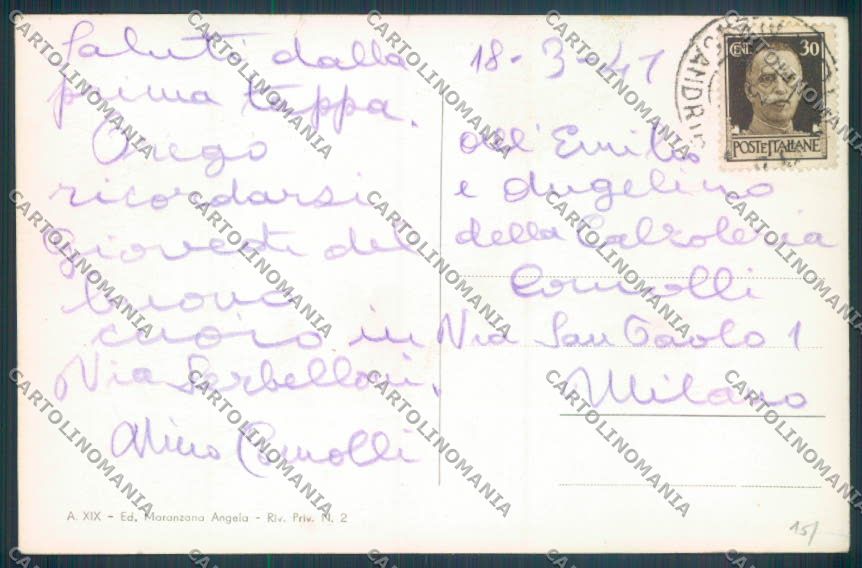 Saluti dalla
prima tappa.
Prego
ricordarsi
Giovedì del
buono
cuoio in
Via Serbelloni.
Nino Comolli
18-3-41
all'Emilio
e Angelino
della Calzoleria
Comolli
Via San Paolo 1
Milano
CENT. 30
POSTE ITALIANE
A. XIX - Ed. Maranzana Angela - Riv. Priv. N. 2
15/
CARTOLINOMANIA